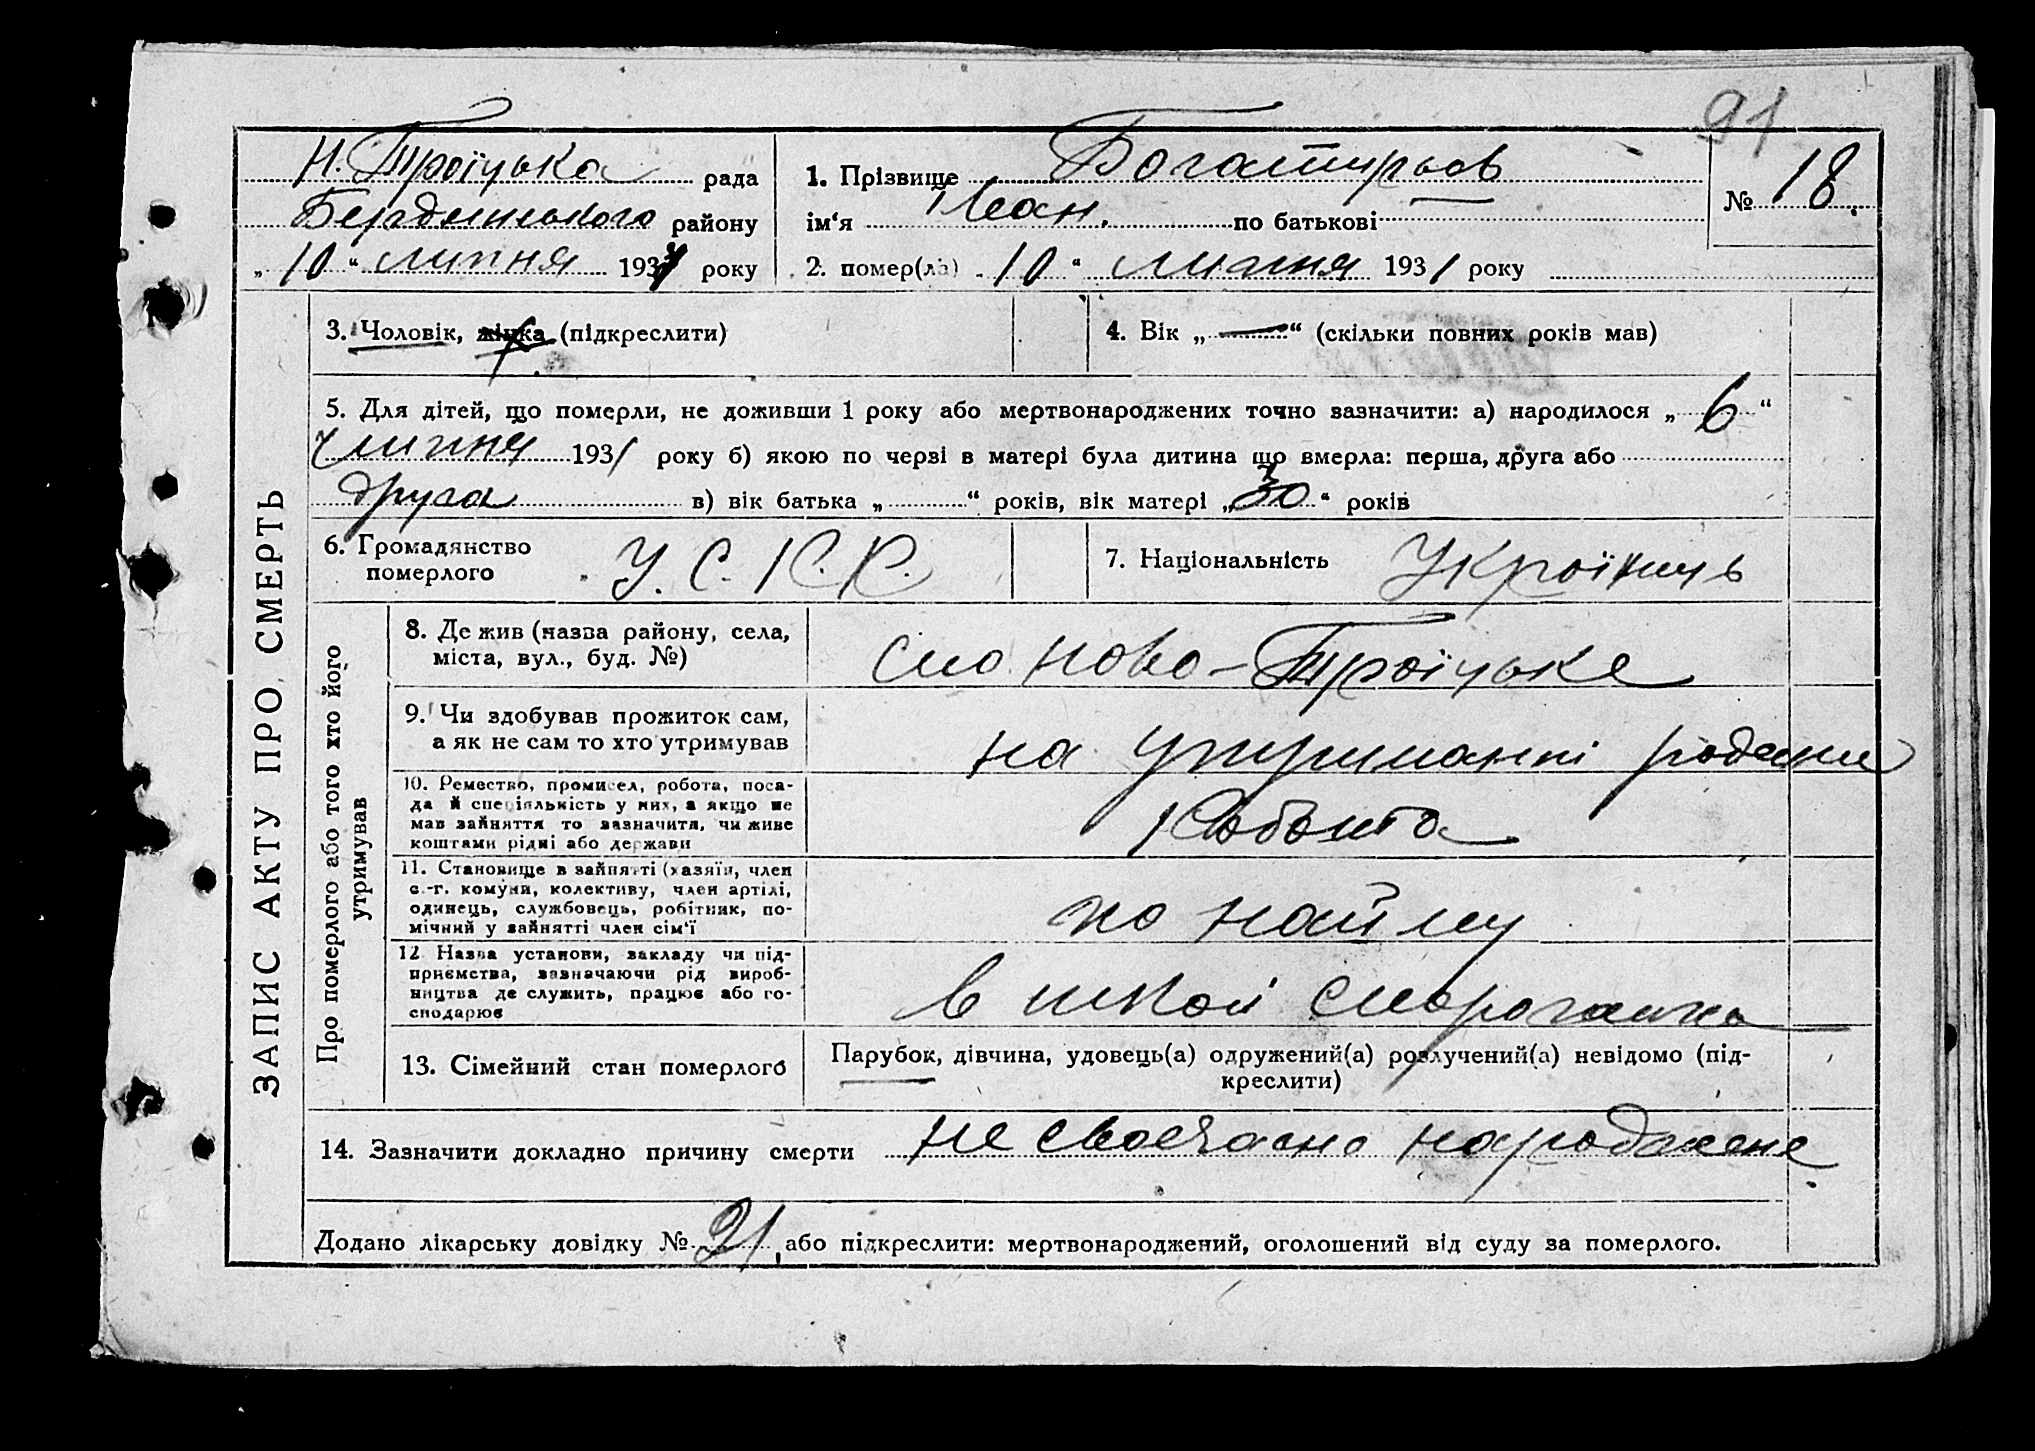 91
Н. Троїцька рада
Бердянського району
„ 10 “ липня 1931 року
1. Прізвище Богатирьов
ім‘я Іван. по батькові
2. помер(ла) „ 10 “ липня 1931 року
№ 18.
ЗАПИС АКТУ ПРО СМЕРТЬ
3. Чоловік, жінка (підкреслити)
4. Вік „ — “ (скільки повних років мав)
5. Для дітей, що померли, не доживши 1 року або мертвонароджених точно зазначити: а) народилося „ 6 “
липня 1931 року б) якою по черзі в матері була дитина що вмерла: перша, друга або
друга в) вік батька „ “ років, вік матері „ 30 “ років
6. Громадянство
померлого
У. С. Р. Р.
7. Національність Українць
Про померлого або того хто його
утримував
8. Де жив (назва району, села,
міста, вул., буд. №)
село Ново-Троїцьке
9. Чи здобував прожиток сам,
а як не сам то хто утримував
на утриманні родини
10. Ремество, промисел, робота, поса-
да й спеціяльність у них, а якщо не
мав зайняття то зазначити, чи живе
коштами рідні або держави
11. Становище в зайнятті (хазяїн, член
с.-г. комуни, колективу, член артілі,
одинець, службовець, робітник, по-
мічний у зайнятті член сім‘ї
по найму
12. Назва установи, закладу чи під-
приємства, зазначаючи рід вироб-
ництва де служить, працює або го-
сподарює
в школі
13. Сімейний стан померлого
Парубок, дівчина, удовець(а) одружений(а) розлучений(а) невідомо (під-
креслити)
14. Зазначити докладно причину смерти не своєчасно народжене.
Додано лікарську довідку № 21, або підкреслити: мертвонароджений, оголошений від суду за померлого.